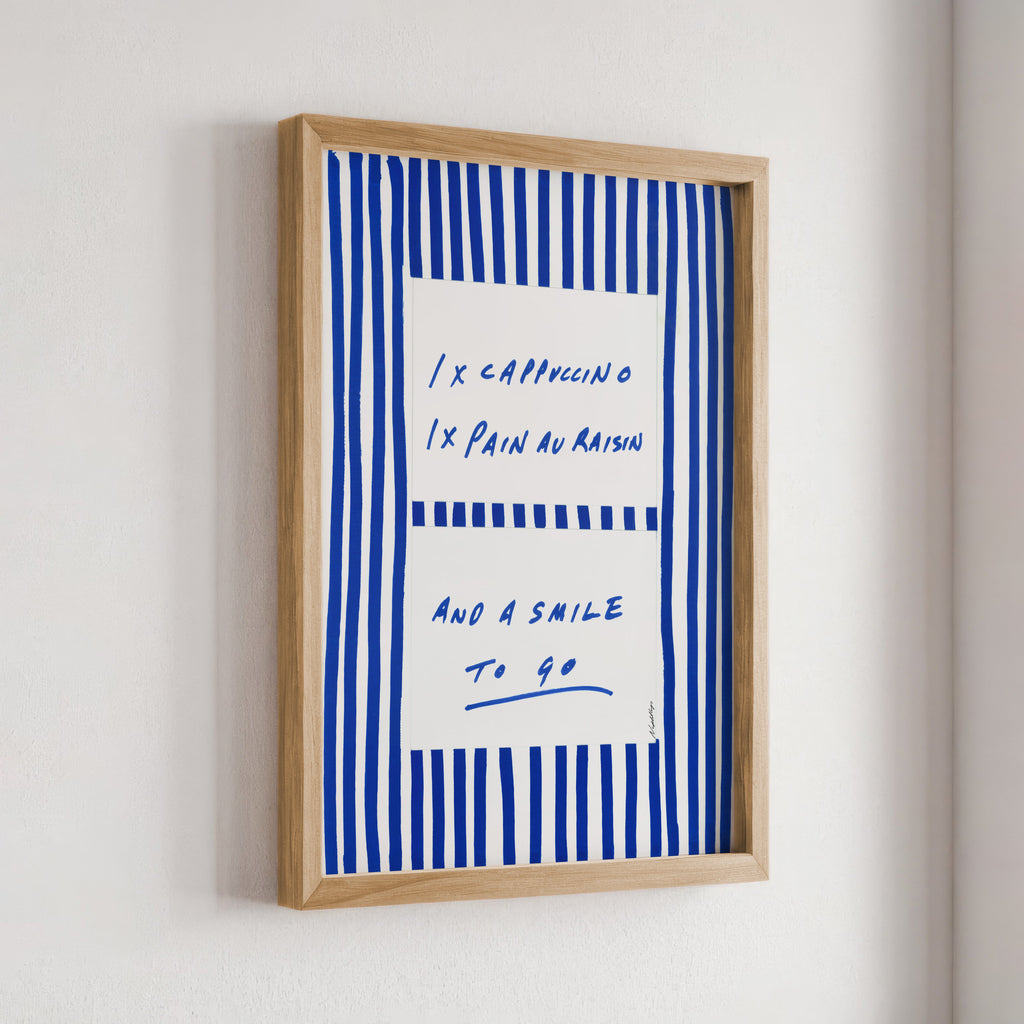 1X CAPPUCCINO
1X PAIN AU RAISIN
AND A SMILE
TO GO